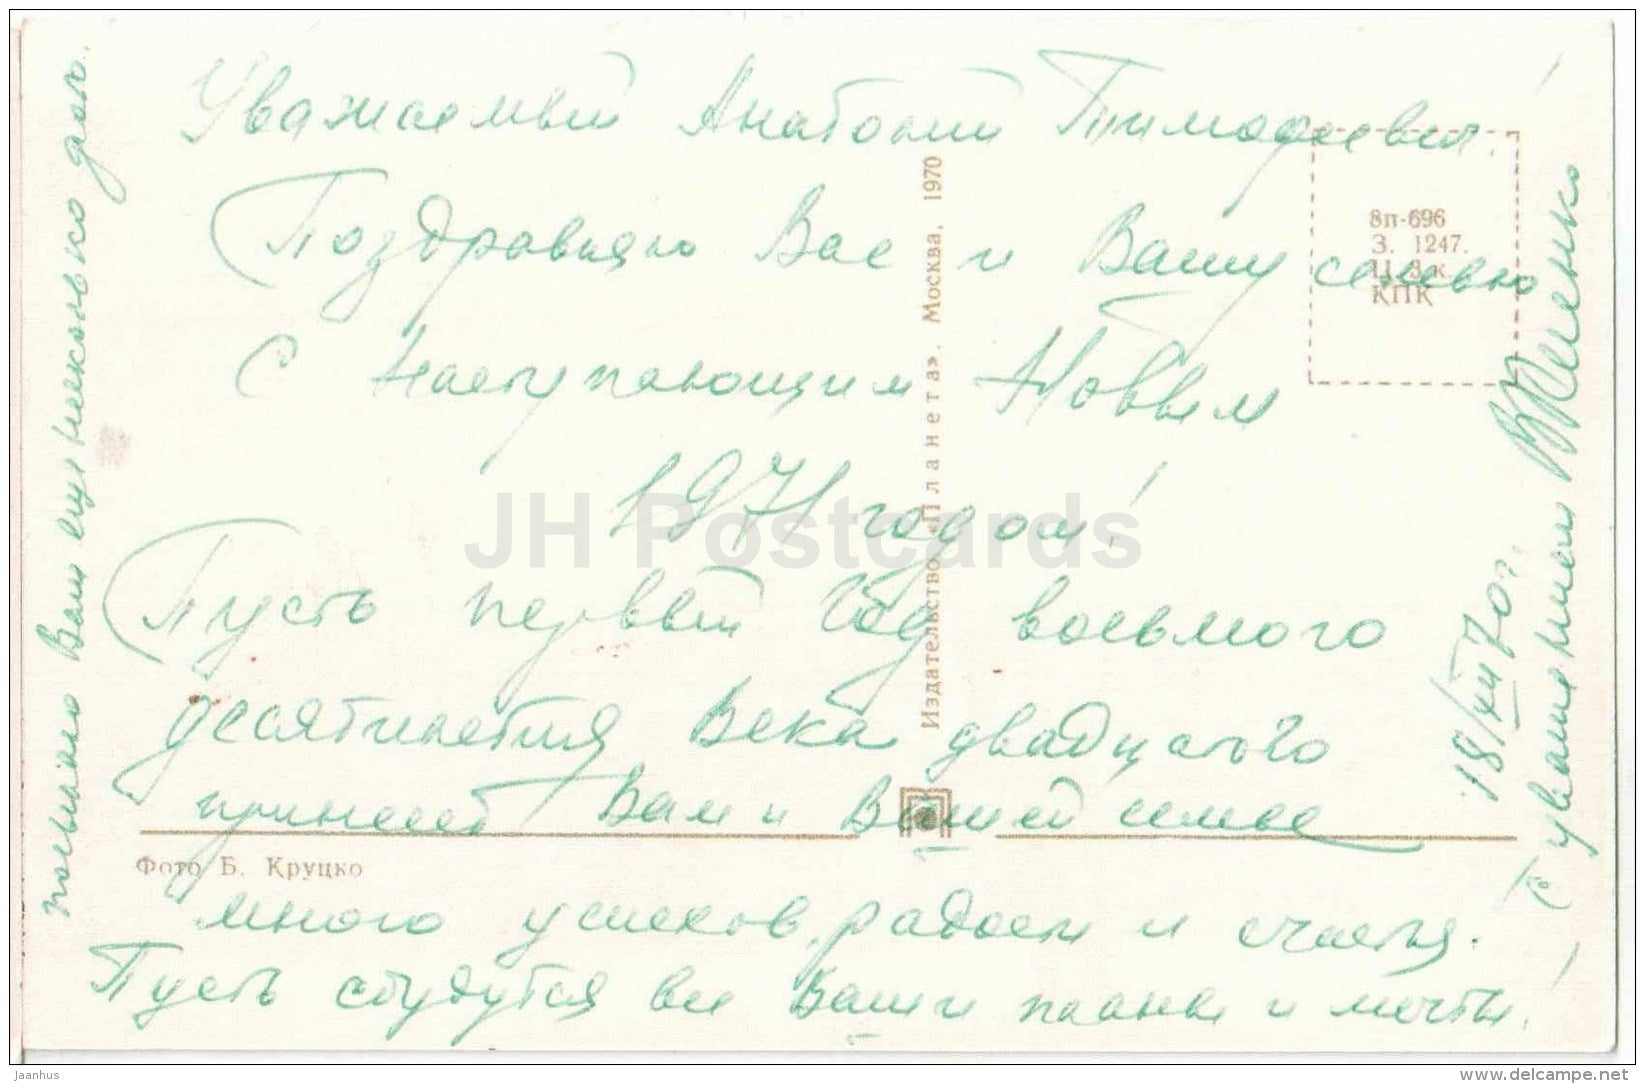 Уважаемый Анатолий Тимофеевич!
Поздравляю Вас и Вашу семью
с наступающим Новым
1971 годом!
Пусть первый год восьмого
десятилетия Века двадцатого
принесет Вам и Вашей семье
много успехов, радости и счастья.
Пусть сбудутся все Ваши планы и мечты!
С уважением
18/XII 70г.
Вам ещё несколько
Издательство «Планета». Москва, 1970
8п-696
З. 1247.
Ц. 3 к.
КПК
Фото Б. Круцко
JH Postcards
jaanhus
www.delcampe.net